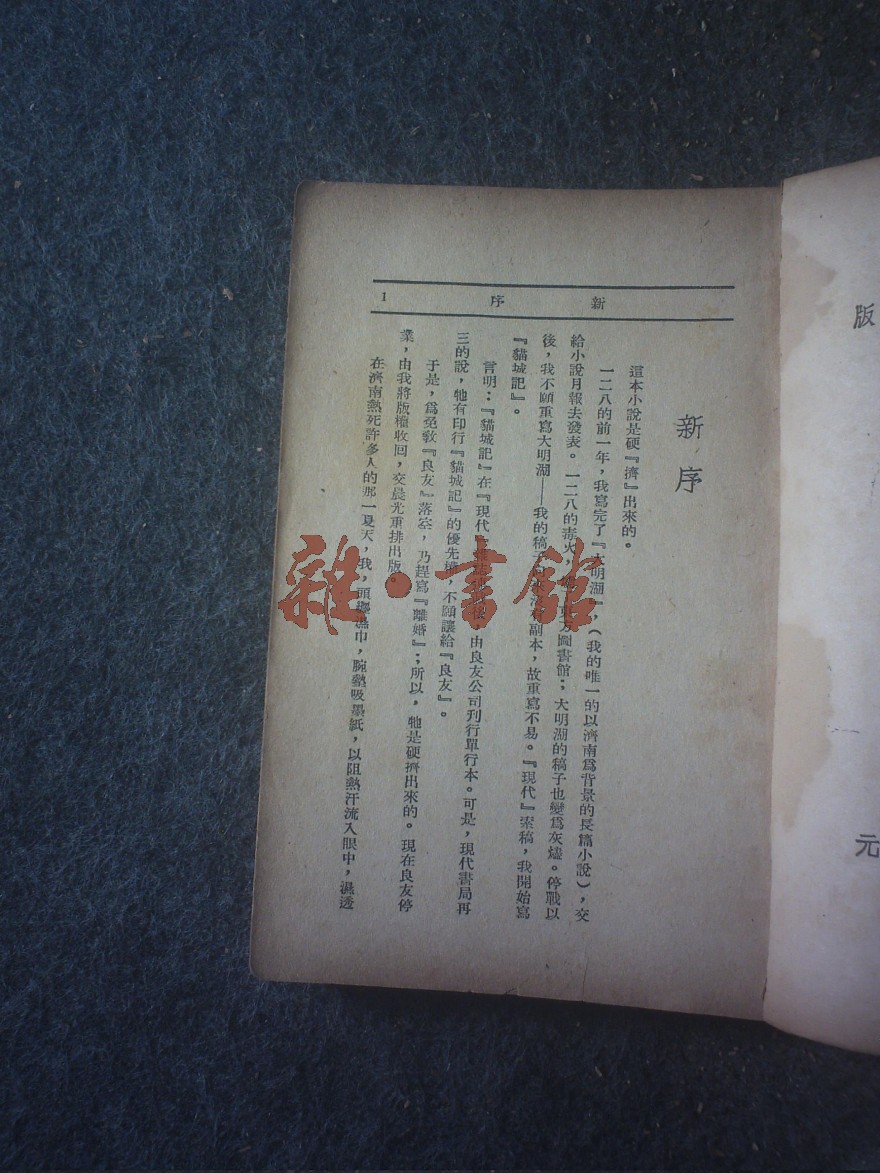 版
元
新序
1
新序
這本小說是硬『擠』出來的。
一二八的前一年，我寫完了『大明湖』，（我的唯一的以濟南爲背景的長篇小說），交
給小說月報去發表。一二八的毒火，東方圖書館；大明湖的稿子也變爲灰燼。停戰以
後，我不願重寫大明湖——我的稿子副本，故重寫不易。『現代』索稿，我開始寫
『貓城記』。
言明：『貓城記』在『現代，由良友公司刊行單行本。可是，現代書局再
三的說，牠有印行『貓城記』的優先權，不願讓給『良友』。
于是，爲免敎『良友』落空，乃趕寫『離婚』；所以，牠是硬擠出來的。現在良友停
業，由我將版權收回，交晨光重排出版。
在濟南熱死許多人的那一夏天，我，頭纏濕巾，腕墊吸墨紙，以阻熱汗流入眼中，濕透
雜·書館